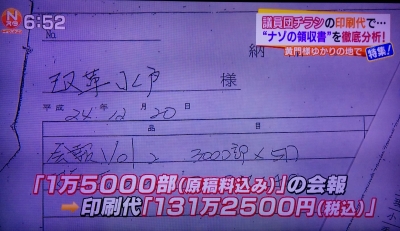 6:52
議員団チラシの印刷代で…
“ナゾの領収書”を徹底分析!
黄門様ゆかりの地で
特集!
改革水戸 様
平成 24年 12月 20日
品 目
会報Vol 3000部×5円
「1万5000部(原稿料込み)」の会報
➡印刷代「131万2500円(税込)」